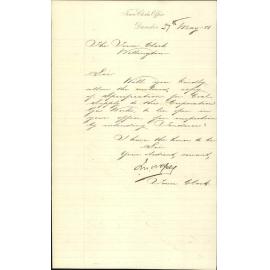 Town Clerk's Office
Dunedin 27th May
The Town Clerk
Wellington
Sir
Will you kindly
allow the enclosed copy
of Specification for Coal
Supply to the Corporation
Gas Works to be in
your office for inspection
by intending Tenderers
I have the honor to be
Sir
Your obedient servant
Town Clerk